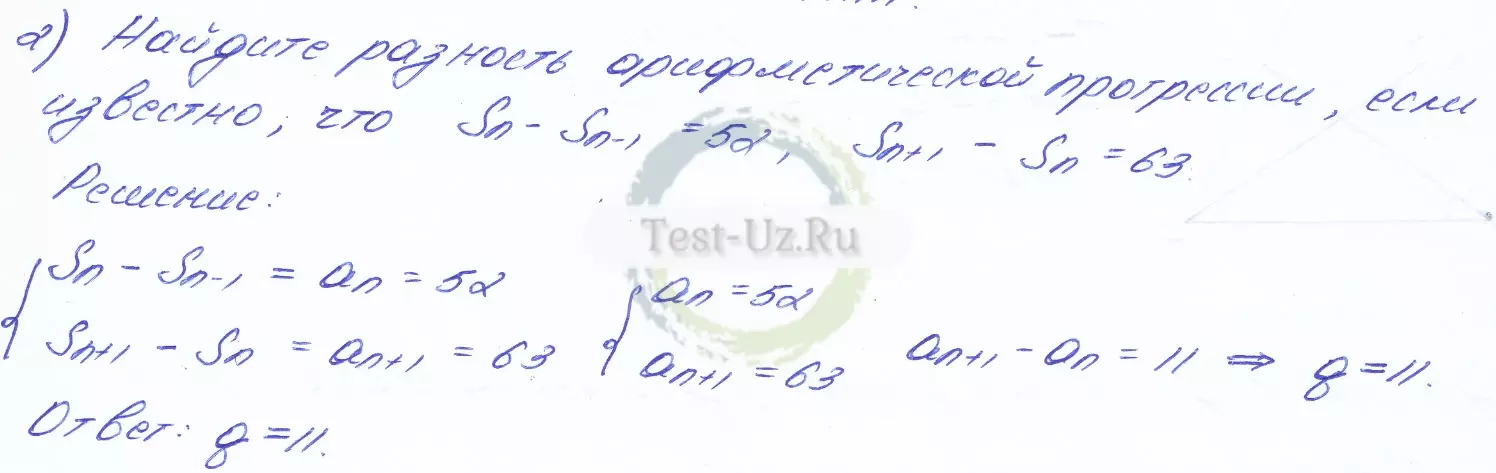 2) Найдите разность арифметической прогрессии, если
известно, что Sn - Sn-1 = 52, Sn+1 - Sn = 63.
Решение:
Test-Uz.Ru
Sn - Sn-1 = an = 52 an = 52
Sn+1 - Sn = an+1 = 63 an+1 = 63 an+1 - an = 11 ⇒ d = 11.
Ответ: d = 11.